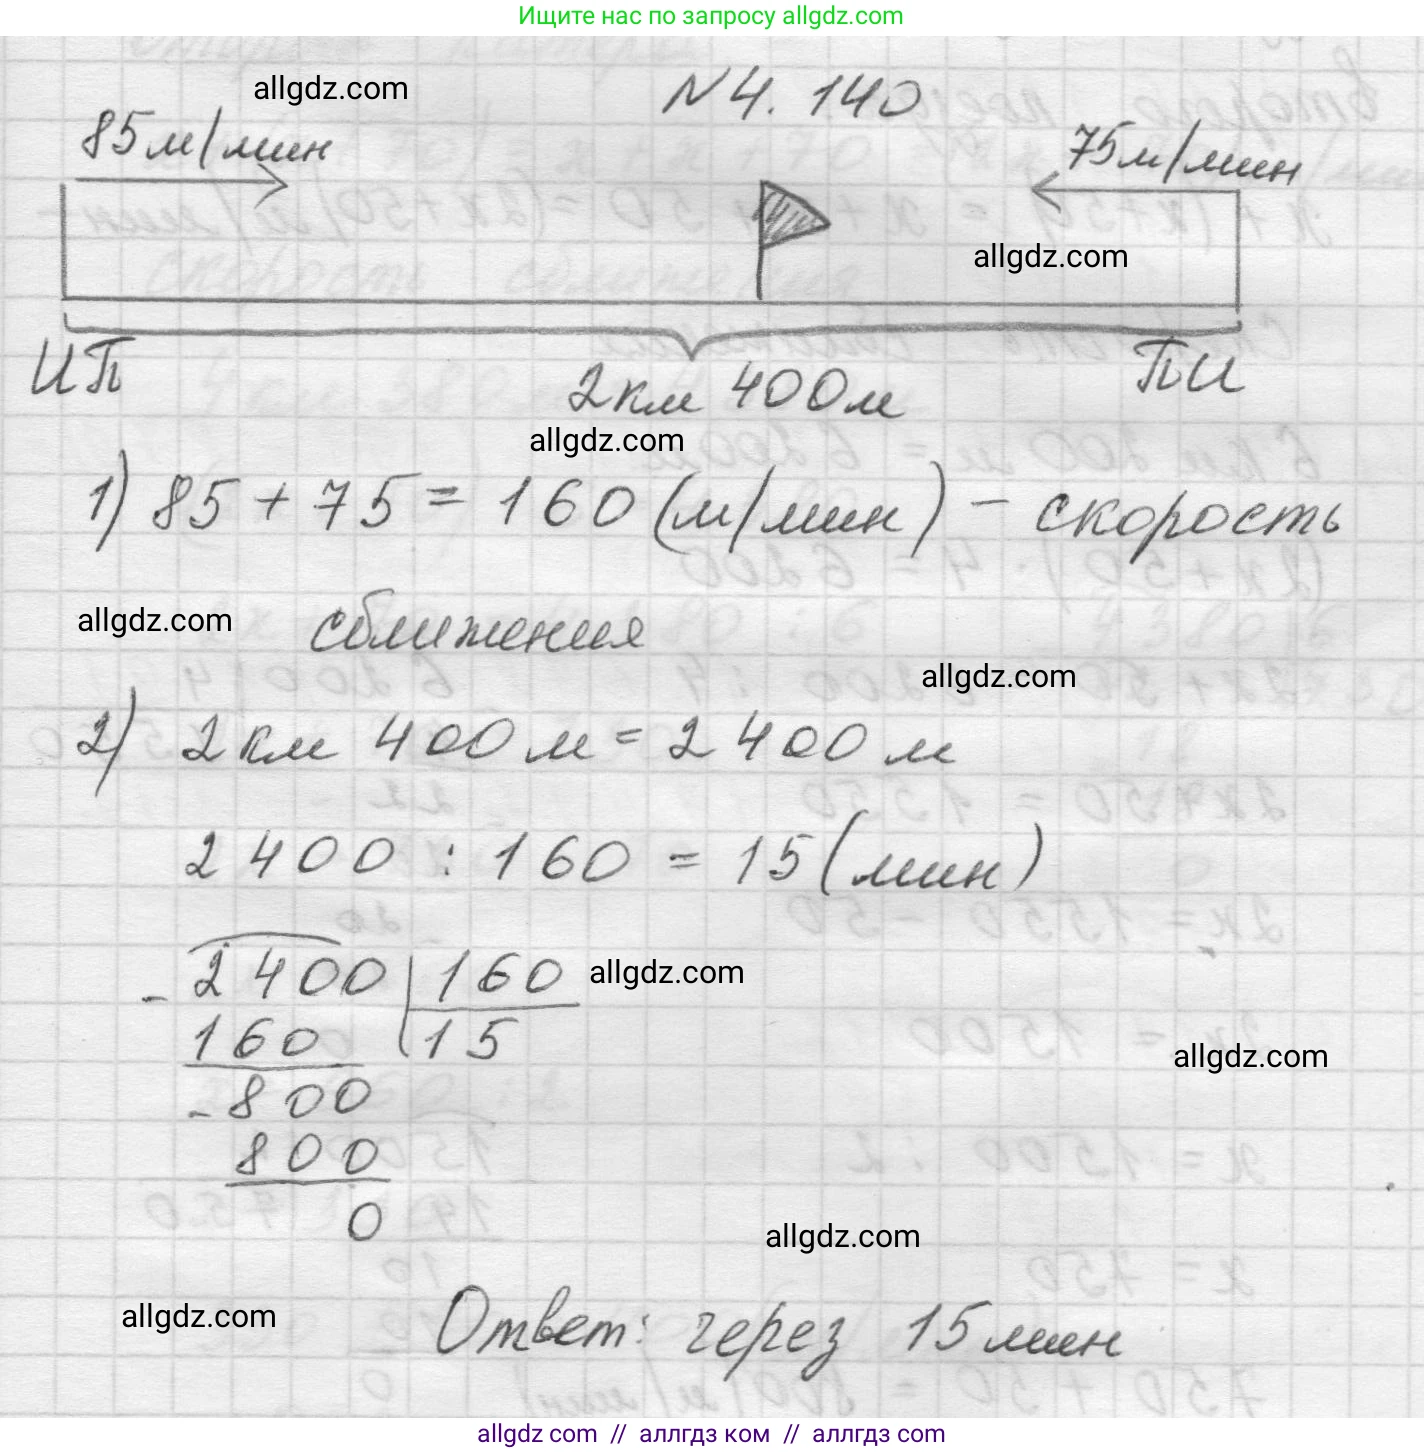 Ищите нас по запросу allgdz.com
allgdz.com
N 4. 140
85м/мин
75м/мин
allgdz.com
ИП
ПИ
2км 400м
allgdz.com
1) 85 + 75 = 160 (м/мин) - скорость
allgdz.com
сближения
allgdz.com
2) 2км 400м = 2400 м
2400 : 160 = 15 (мин)
- 2400 160
allgdz.com
160 15
allgdz.com
- 800
800
0
allgdz.com
allgdz.com
Ответ: через 15 мин
allgdz.com // аллгдз ком // аллгдз com